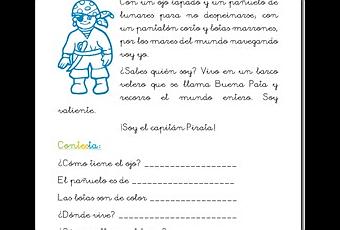 Con un ojo tapado y un pañuelo de
lunares para no despeinarse, con
un pantalón corto y botas marrones,
por los mares del mundo navegando
voy yo.
¿Sabes quién soy? Vivo en un barco
velero que se llama Buena Pata y
recorro el mundo entero. Soy
valiente.
¡Soy el capitán Pirata!
Contesta:
¿Cómo tiene el ojo? _________________
El pañuelo es de _________________
Las botas son de color _________________
¿Dónde vive? _________________